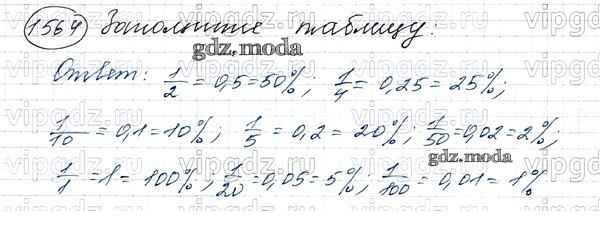 1564 Заполните таблицу.
gdz.moda
Ответ: 1/2 = 0,5 = 50%; 1/4 = 0,25 = 25%;
1/10 = 0,1 = 10%; 1/5 = 0,2 = 20%; 1/50 = 0,02 = 2%;
gdz.moda
1/1 = 1 = 100%; 1/20 = 0,05 = 5%; 1/100 = 0,01 = 1%